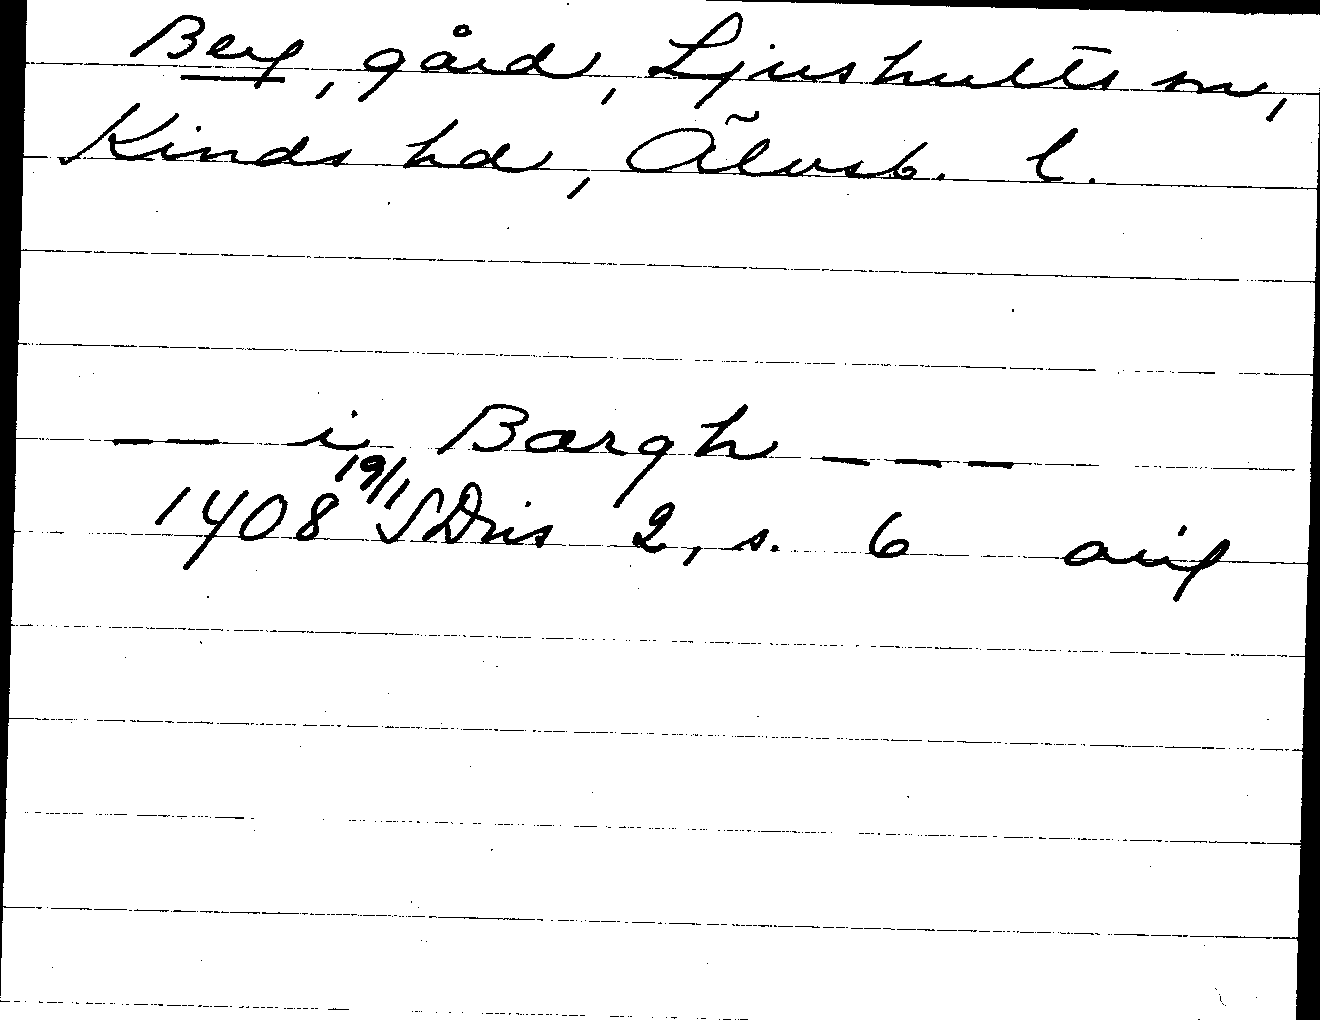 Berg, gård, Ljushults sn,
Kinds hd, Älvsb. l.
— — i Bargh — — —
1408 19/1 SDns 2, s. 6 orig